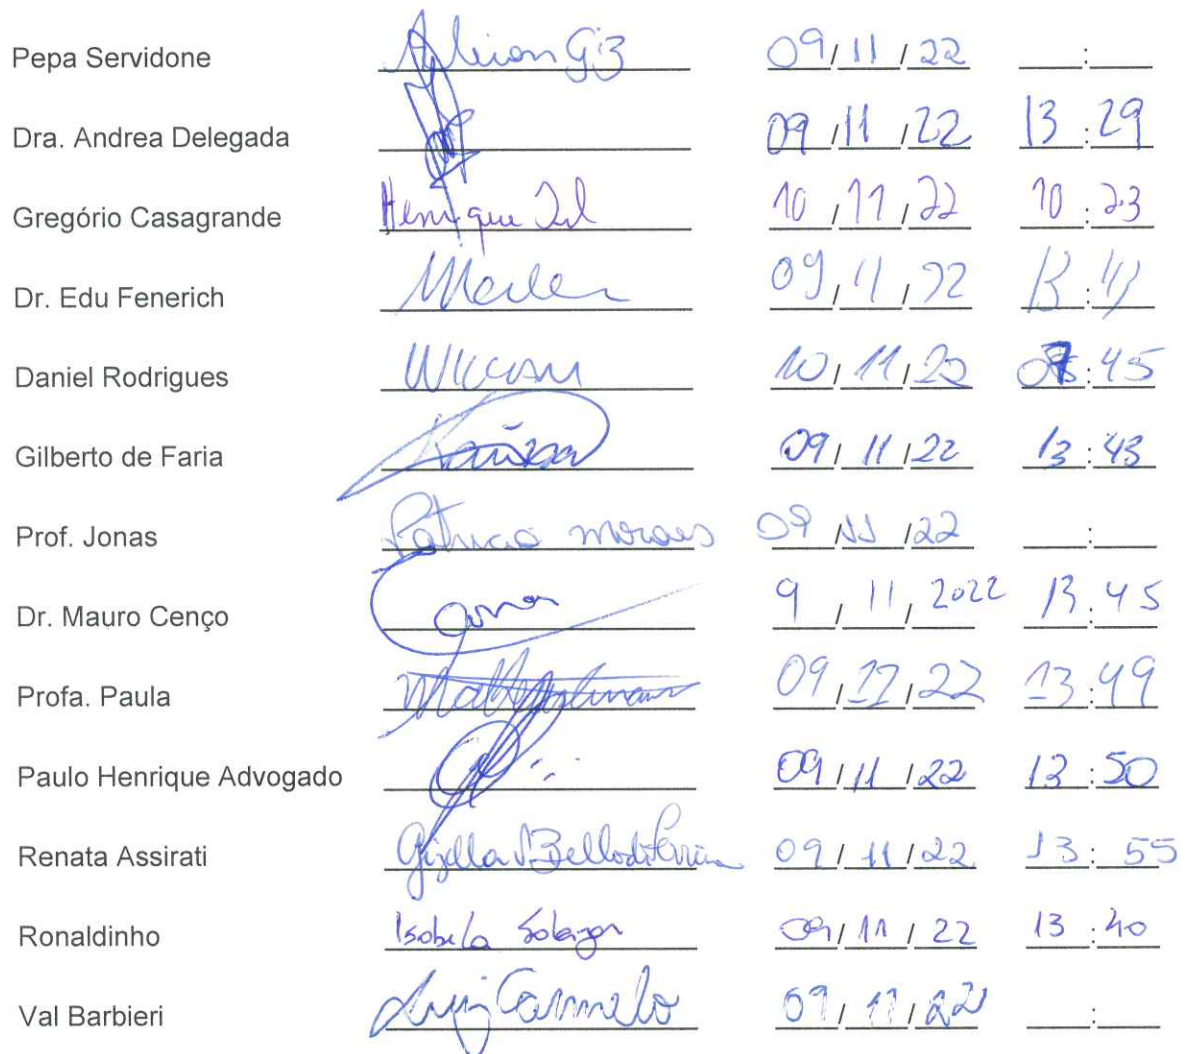 Pepa Servidone 09/11/22 :
Dra. Andrea Delegada 09/11/22 13:29
Gregório Casagrande Henrique 10/11/22 10:23
Dr. Edu Fenerich 09/11/22
Daniel Rodrigues 10/11/22 :45
Gilberto de Faria 09/11/22 13:43
Prof. Jonas Patricia moraes 09/11/22 :
Dr. Mauro Cenço 9/11/2022 13:45
Profa. Paula 09/11/22 13:49
Paulo Henrique Advogado 09/11/22 13:50
Renata Assirati 09/11/22 13:55
Ronaldinho Isabela 09/11/22 13:40
Val Barbieri Luiz Carmelo 09/11/22 :